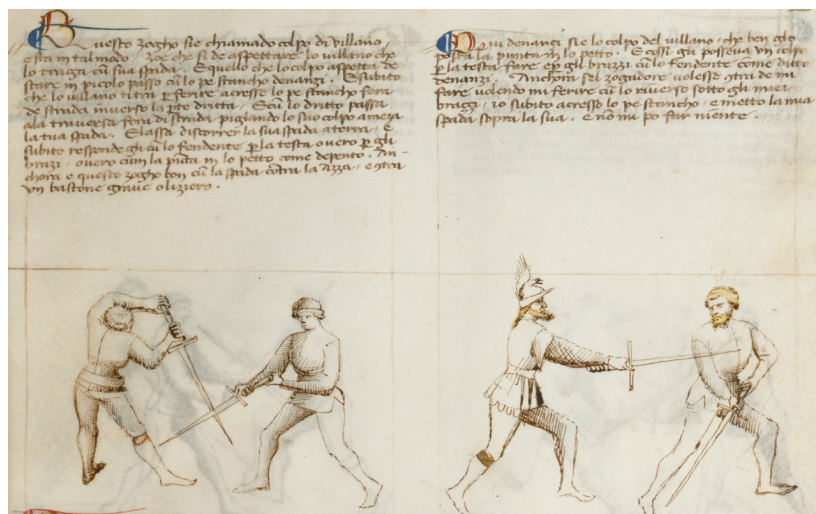 Questo zogho sie chiamado colpo di villano /
e sta in tal modo / zoe che si de aspettare lo villano che
lo traga cum sua spada / E quello che lo colpo aspetta de
stare in picolo passo cum lo pe stancho denanzi / E subito
che lo villano ti tira per ferire acresse lo pe stancho fora
de strada inverso la parte dritta / E cum lo dritto passa
ala traversa fora di strada piglando lo suo colpo a meza
la tua spada / E lassa discorrer la sua spada a terra / e
subito responde gli cum lo fendente per la testa overo per gli
brazi / overo cum la punta in lo petto come depento / An-
chora e questo zogho bon cum la spada contra la azza / e contra
un bastone grave o lizzero /
Qui denanzi sie lo colpo del villano / che ben glo
posta la punta in lo petto / E cossi gli posseva un colpo
per la testa fare e per gli brazzi cum lo fendente come ditto
denanzi / Anchora sel zogadore volesse contra de mi
fare volendo mi ferire cum lo riverso sotto gli miei
brazi / io subito acresso lo pe stancho / e metto la mia
spada sopra la sua / e non mi po far niente /